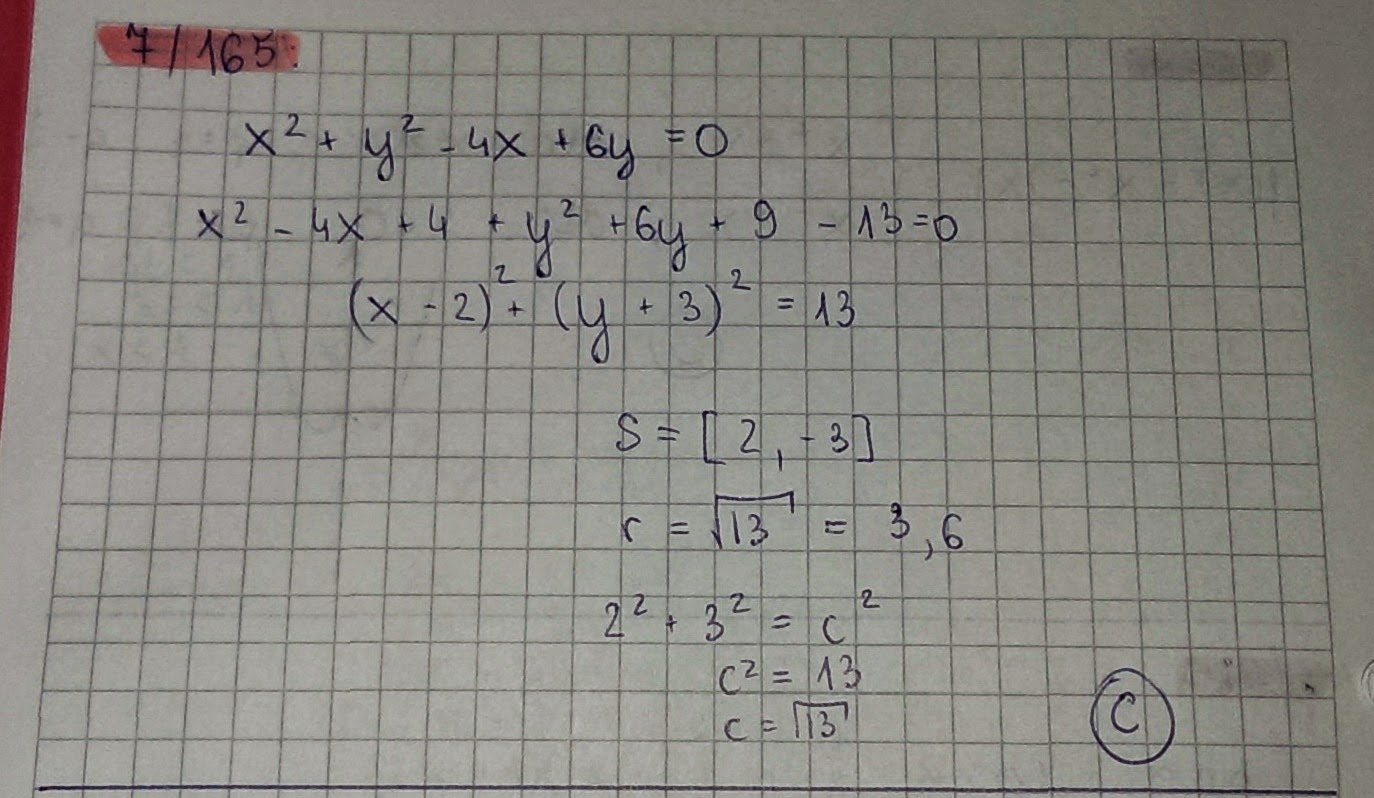 7/165:
x² + y² - 4x + 6y = 0
x² - 4x + 4 + y² + 6y + 9 - 13 = 0
(x - 2)² + (y + 3)² = 13
S = [2, -3]
r = √13 = 3,6
2² + 3² = c²
c² = 13
c = √13
C